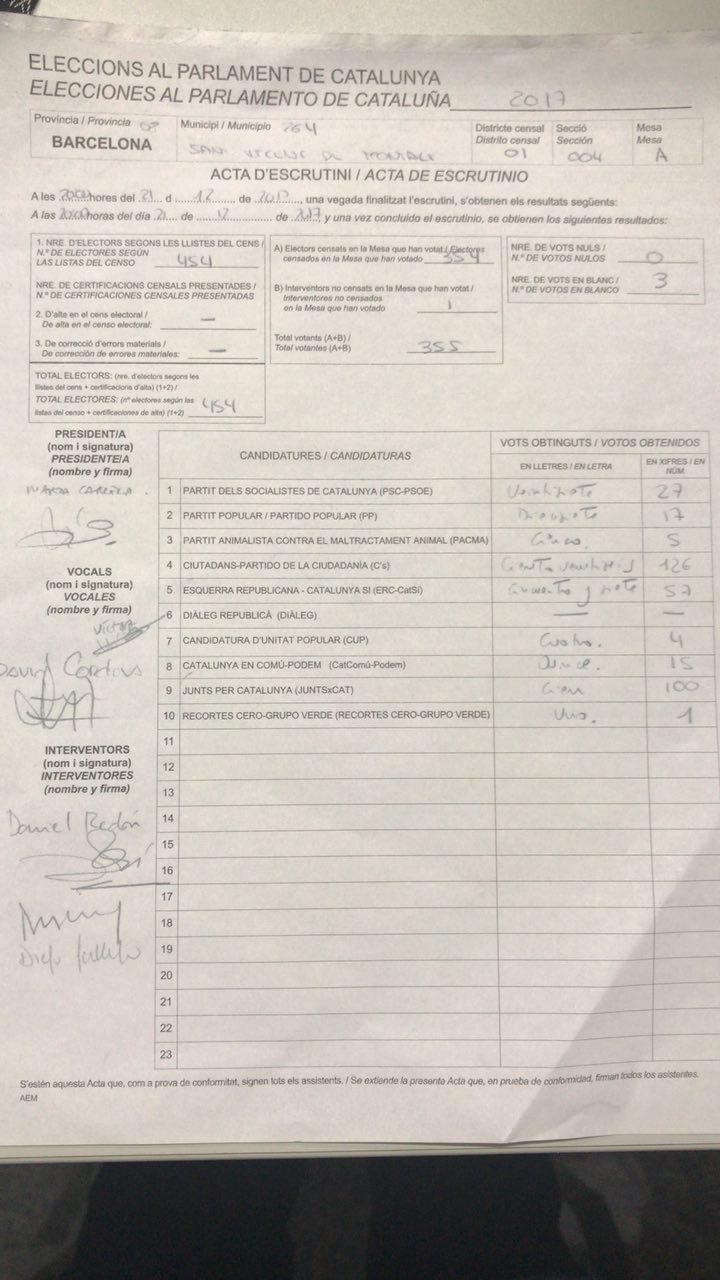 ELECCIONS AL PARLAMENT DE CATALUNYA
ELECCIONES AL PARLAMENTO DE CATALUÑA 2017
Província / Provincia 08
BARCELONA
Municipi / Municipio 264
SANT VICENÇ DE MONTALT
Districte censal
Distrito censal
01
Secció
Sección
004
Mesa
Mesa
A
ACTA D'ESCRUTINI / ACTA DE ESCRUTINIO
A les 2000 hores del 21 d 12 de 2017, una vegada finalitzat l'escrutini, s'obtenen els resultats següents:
A las 2000 horas del día 21 de 12 de 2017 y una vez concluido el escrutinio, se obtienen los siguientes resultados:
1. NRE. D'ELECTORS SEGONS LES LLISTES DEL CENS /
N.º DE ELECTORES SEGÚN
LAS LISTAS DEL CENSO 454
NRE. DE CERTIFICACIONS CENSALS PRESENTADES /
N.º DE CERTIFICACIONES CENSALES PRESENTADAS
2. D'alta en el cens electoral /
De alta en el censo electoral: —
3. De correcció d'errors materials /
De corrección de errores materiales: —
TOTAL ELECTORS: (nre. d'electors segons les
llistes del cens + certificacions d'alta) (1+2) /
TOTAL ELECTORES: (nº electores según las
listas del censo + certificaciones de alta) (1+2) 454
A) Electors censats en la Mesa que han votat / Electores
censados en la Mesa que han votado 354
B) Interventors no censats en la Mesa que han votat /
Interventores no censados
en la Mesa que han votado 1
Total votants (A+B) /
Total votantes (A+B) 355
NRE. DE VOTS NULS /
N.º DE VOTOS NULOS 0
NRE. DE VOTS EN BLANC /
N.º DE VOTOS EN BLANCO 3
PRESIDENT/A
(nom i signatura)
PRESIDENTE/A
(nombre y firma)
VOCALS
(nom i signatura)
VOCALES
(nombre y firma)
David
INTERVENTORS
(nom i signatura)
INTERVENTORES
(nombre y firma)
Daniel
CANDIDATURES / CANDIDATURAS
VOTS OBTINGUTS / VOTOS OBTENIDOS
EN LLETRES / EN LETRA
EN XIFRES / EN NÚM
1 PARTIT DELS SOCIALISTES DE CATALUNYA (PSC-PSOE) Veintisiete 27
2 PARTIT POPULAR / PARTIDO POPULAR (PP) Diecisiete 17
3 PARTIT ANIMALISTA CONTRA EL MALTRACTAMENT ANIMAL (PACMA) Cinco. 5
4 CIUTADANS-PARTIDO DE LA CIUDADANÍA (C's) Ciento veintiseis 126
5 ESQUERRA REPUBLICANA - CATALUNYA SI (ERC-CatSí) Cincuenta y siete 57
6 DIÀLEG REPUBLICÀ (DIÀLEG) — —
7 CANDIDATURA D'UNITAT POPULAR (CUP) Cuatro. 4
8 CATALUNYA EN COMÚ-PODEM (CatComú-Podem) Quince. 15
9 JUNTS PER CATALUNYA (JUNTSxCAT) Cien 100
10 RECORTES CERO-GRUPO VERDE (RECORTES CERO-GRUPO VERDE) Uno. 1
11
12
13
14
15
16
17
18
19
20
21
22
23
S'estén aquesta Acta que, com a prova de conformitat, signen tots els assistents. / Se extiende la presente Acta que, en prueba de conformidad, firman todos los asistentes.
AEM